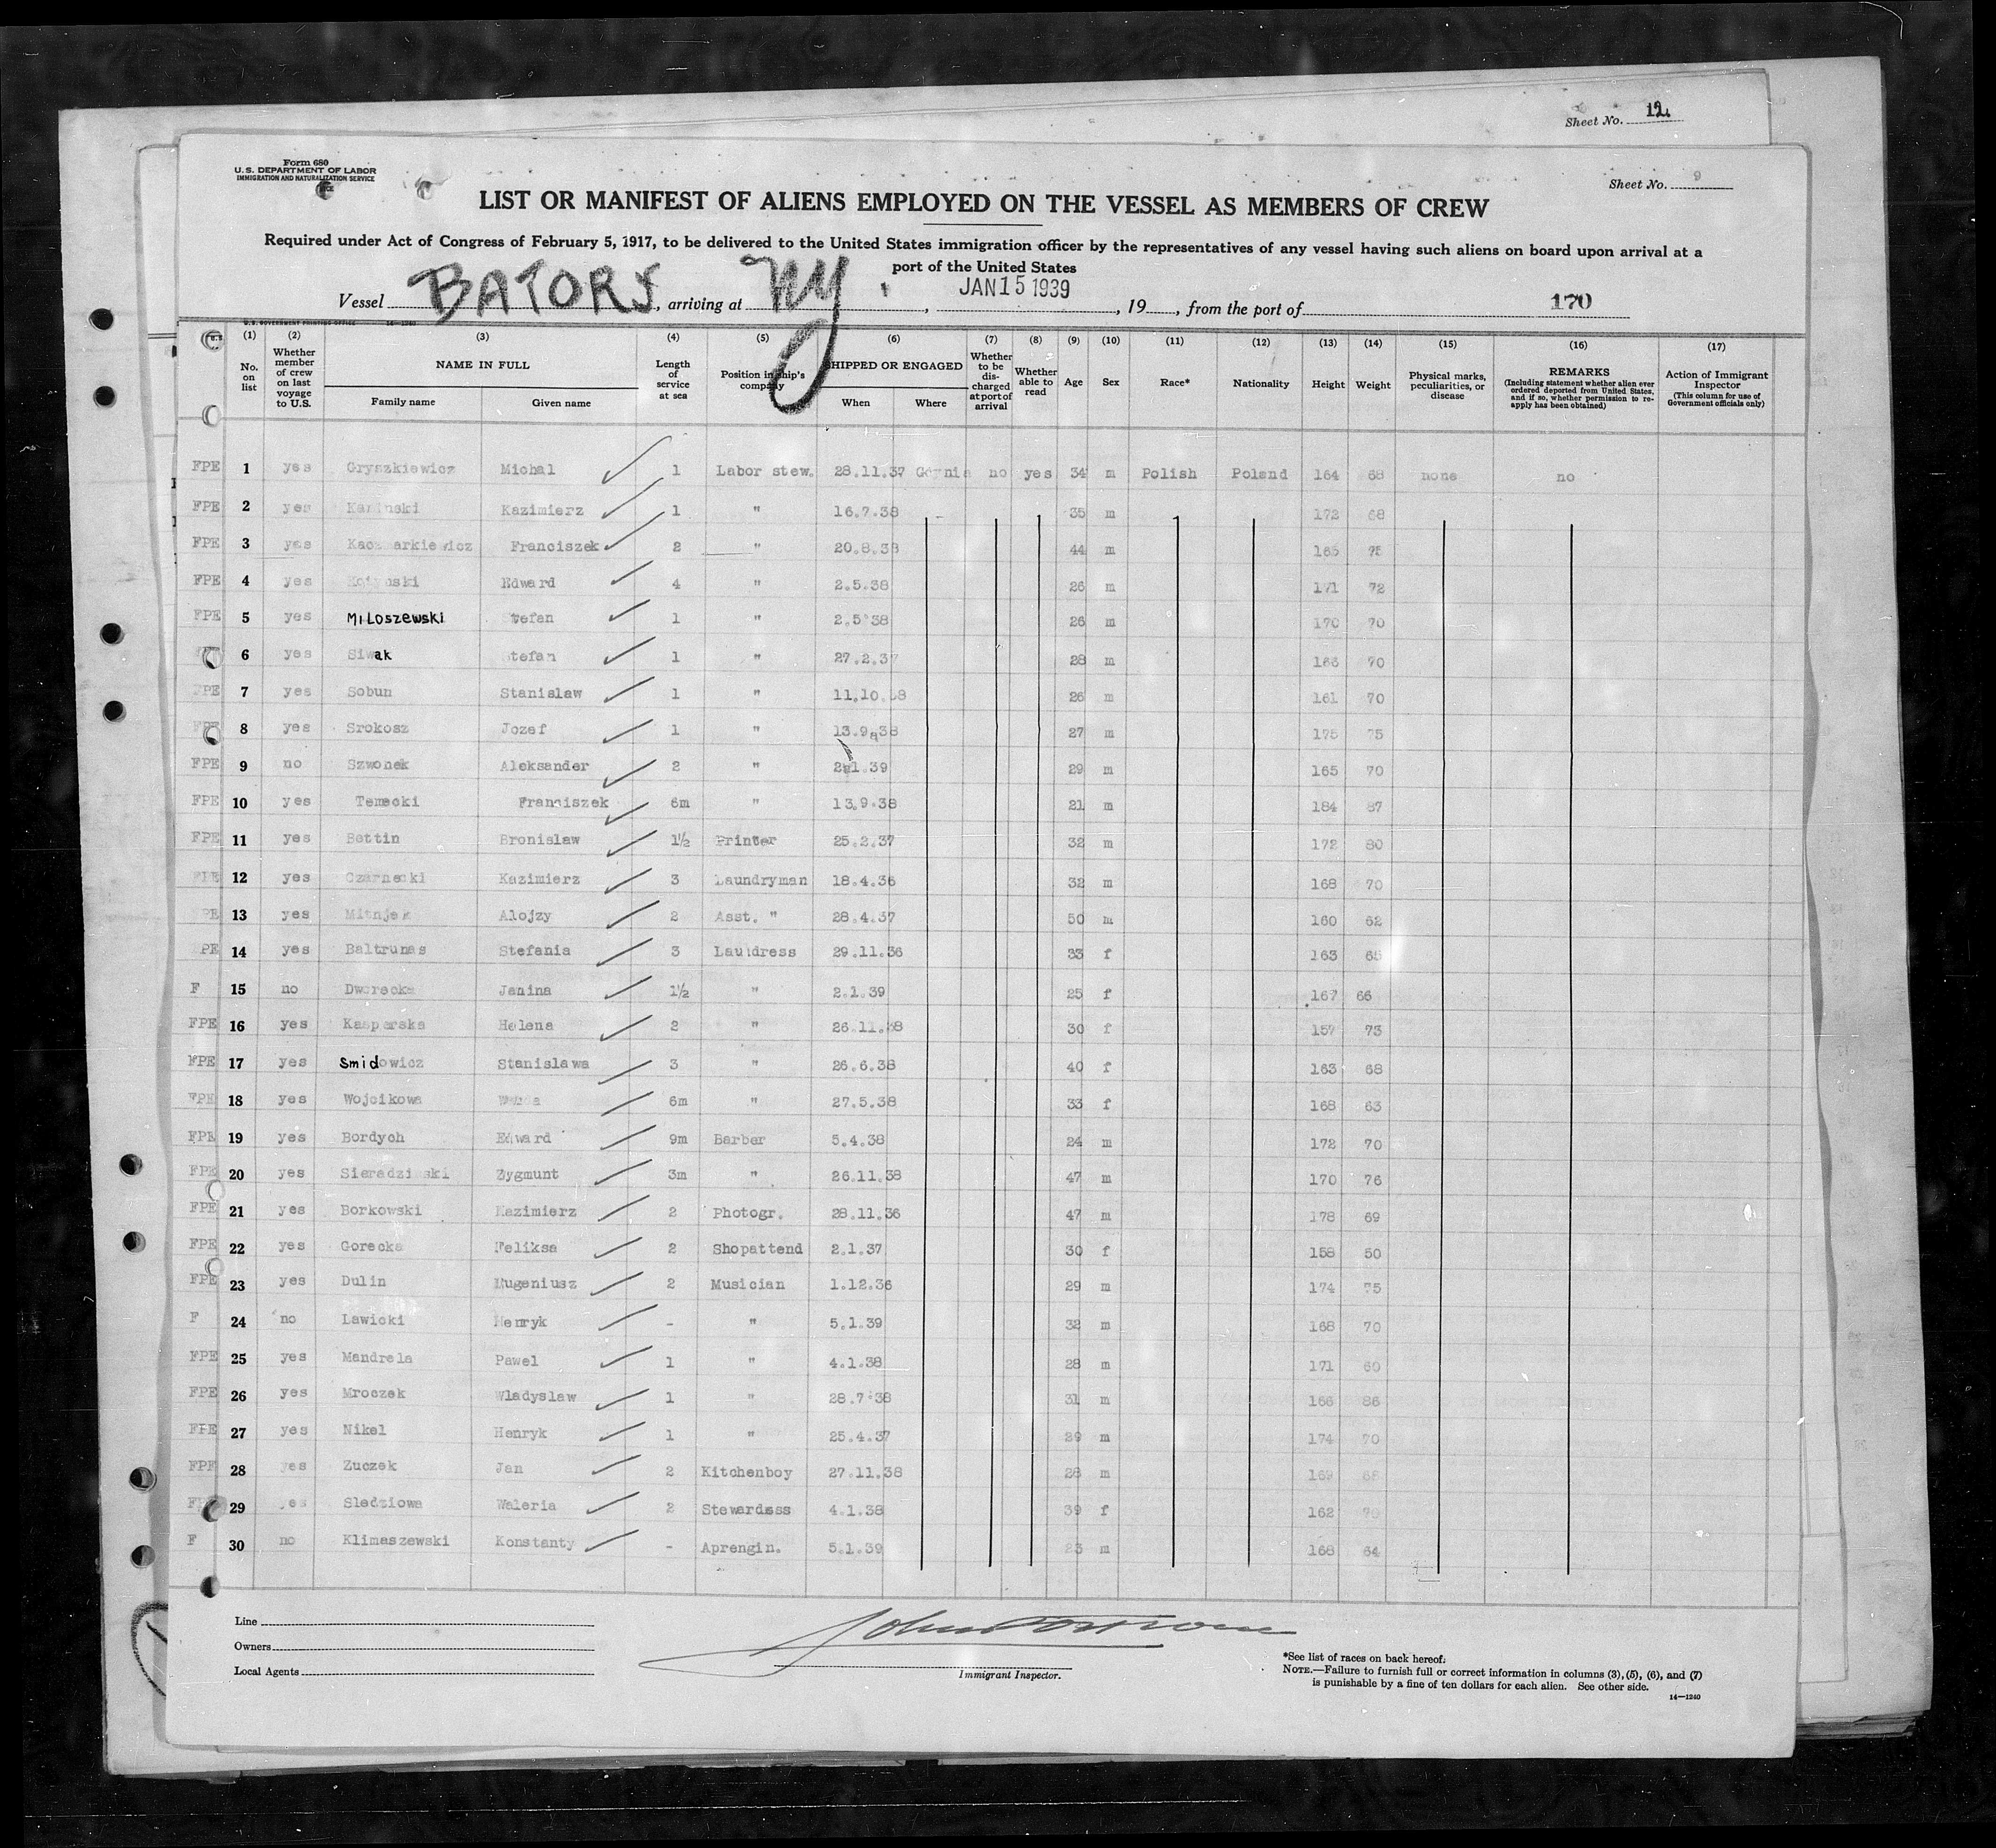 Sheet No. 12.
Form 680
U.S. DEPARTMENT OF LABOR
IMMIGRATION AND NATURALIZATION SERVICE
Sheet No. 9
LIST OR MANIFEST OF ALIENS EMPLOYED ON THE VESSEL AS MEMBERS OF CREW
Required under Act of Congress of February 5, 1917, to be delivered to the United States immigration officer by the representatives of any vessel having such aliens on board upon arrival at a
port of the United States
Vessel BATORY, arriving at NY, JAN 15 1939, 19, from the port of 170
U.S. GOVERNMENT PRINTING OFFICE 14—1240
(1) (2) (3) (4) (5) (6) (7) (8) (9) (10) (11) (12) (13) (14) (15) (16) (17)
No. on list
Whether member of crew on last voyage to U.S.
NAME IN FULL
Family name Given name
Length of service at sea
Position in ship's company
SHIPPED OR ENGAGED
When Where
Whether to be discharged at port of arrival
Whether able to read
Age
Sex
Race*
Nationality
Height
Weight
Physical marks, peculiarities, or disease
REMARKS
(Including statement whether alien ever ordered deported from United States, and if so, whether permission to re-apply has been obtained)
Action of Immigrant Inspector
(This column for use of Government officials only)
FPE 1 yes Gryszkiewicz Michal 1 Labor stew. 28.11.37 Gdynia no yes 34 m Polish Poland 164 68 none no
FPE 2 yes Kaminski Kazimierz 1 " 16.7.38 35 m 172 68
FPE 3 yes Kaczmarkiewicz Franciszek 2 " 20.8.38 44 m 165 75
FPE 4 yes Edward 4 " 2.5.38 26 m 171 72
FPE 5 yes MiLoszewski Stefan 1 " 2.5.38 26 m 170 70
6 yes Siwak Stefan 1 " 27.2.37 28 m 166 70
FPE 7 yes Sobun Stanislaw 1 " 11.10.38 26 m 161 70
FPE 8 yes Srokosz Jozef 1 " 13.9.38 27 m 175 75
FPE 9 no Szwonek Aleksander 2 " 2.1.39 29 m 165 70
FPE 10 yes Temecki Franciszek 6m " 13.9.38 21 m 184 87
FPE 11 yes Bettin Bronislaw 1½ Printer 25.2.37 32 m 172 80
FPE 12 yes Czarnecki Kazimierz 3 Laundryman 18.4.36 32 m 168 70
PE 13 yes Mitnjek Alojzy 2 Asst. " 28.4.37 50 m 160 62
PE 14 yes Baltrunas Stefania 3 Laundress 29.11.36 33 f 163 65
F 15 no Dworecka Janina 1½ " 2.1.39 25 f 167 66
FPE 16 yes Kasperska Helena 2 " 26.11.38 30 f 157 73
FPE 17 yes Smidowicz Stanislawa 3 " 26.6.38 40 f 163 68
FPE 18 yes Wojcikowa Wanda 6m " 27.5.38 33 f 168 63
FPE 19 yes Bordych Edward 9m Barber 5.4.38 24 m 172 70
FPE 20 yes Sieradzinski Zygmunt 3m " 26.11.38 47 m 170 76
FPE 21 yes Borkowski Kazimierz 2 Photogr. 28.11.36 47 m 178 69
FPE 22 yes Gorecka Feliksa 2 Shopattend 2.1.37 30 f 158 50
FPE 23 yes Dulin Eugeniusz 2 Musician 1.12.36 29 m 174 75
F 24 no Lawicki Henryk - " 5.1.39 32 m 168 70
FPE 25 yes Mandrela Pawel 1 " 4.1.38 28 m 171 60
FPE 26 yes Mroczek Wladyslaw 1 " 28.7.38 31 m 166 86
FPE 27 yes Nikel Henryk 1 " 25.4.37 29 m 174 70
FPE 28 yes Zuczek Jan 2 Kitchenboy 27.11.38 28 m 169 68
29 yes Sledziowa Waleria 2 Stewardess 4.1.38 39 f 162 70
F 30 no Klimaszewski Konstanty - Aprengin. 5.1.39 23 m 168 64
Line
Owners
Local Agents
Immigrant Inspector.
*See list of races on back hereof.
NOTE.—Failure to furnish full or correct information in columns (3), (5), (6), and (7)
is punishable by a fine of ten dollars for each alien. See other side.
14—1240